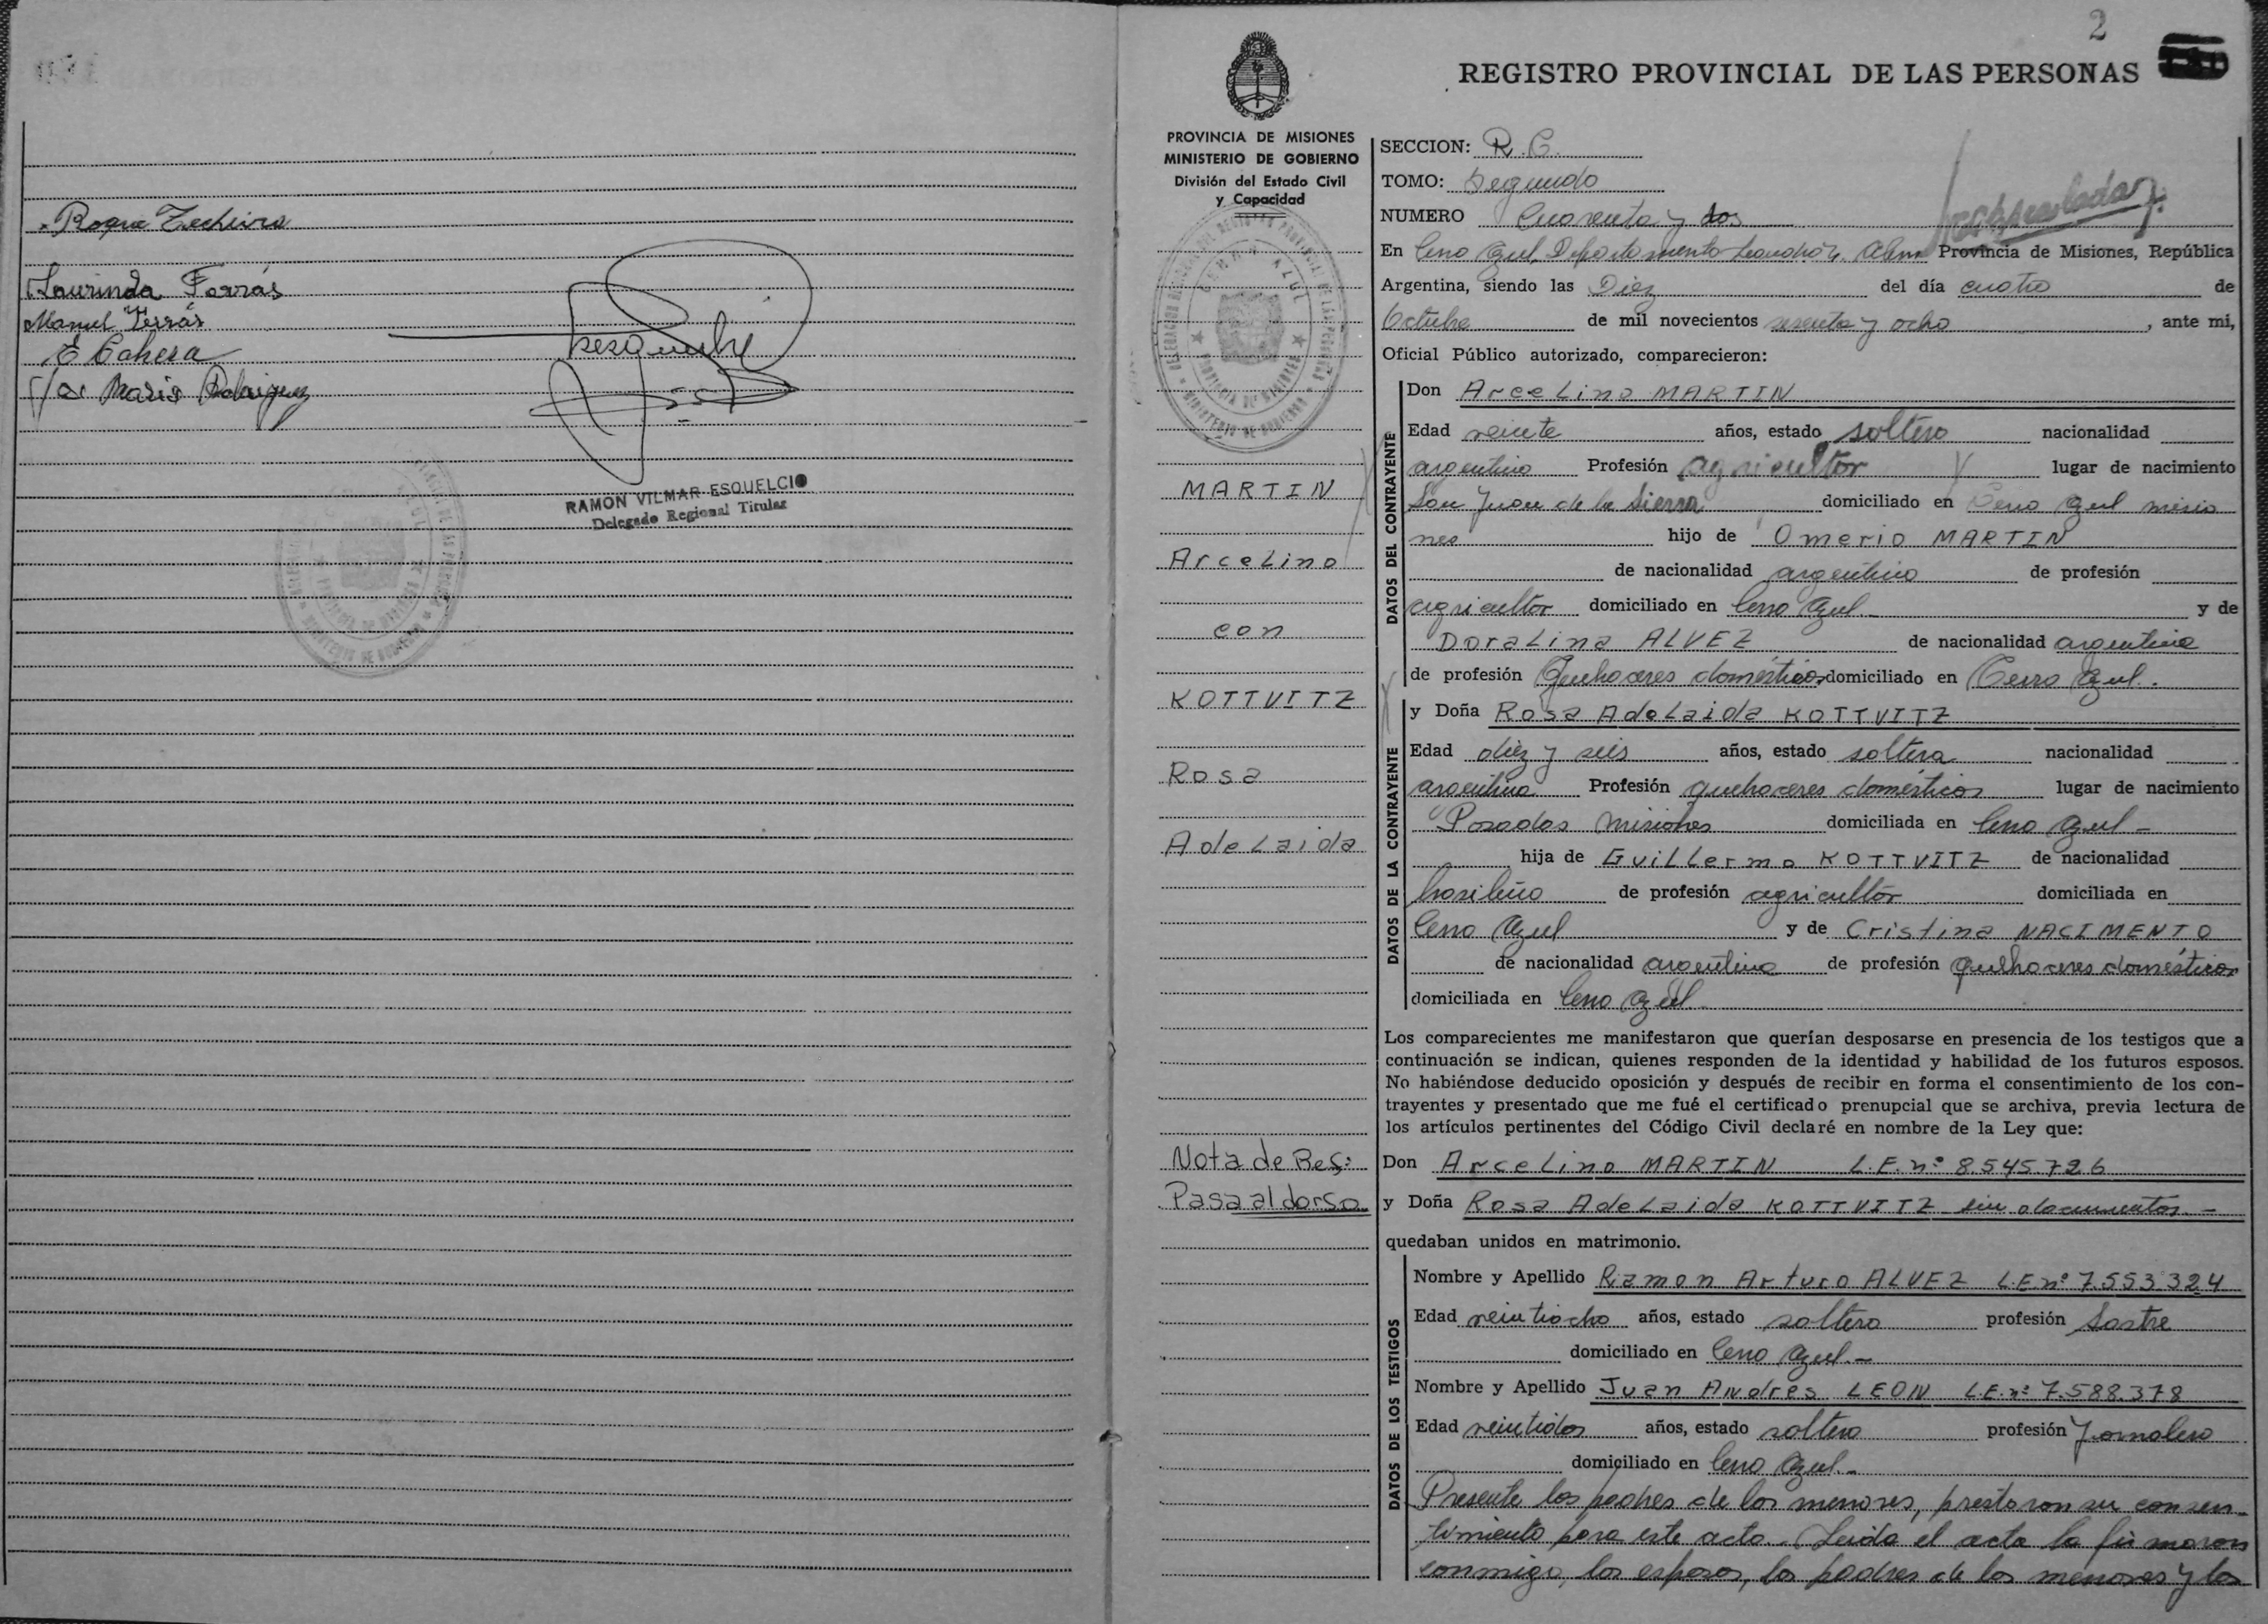 Roque Techeira
Laurinda Farrás
Manuel Ferrás
José Maria Rodriguez
RAMON VILMAR ESQUELCIO
Delegado Regional Titular
2
REGISTRO PROVINCIAL DE LAS PERSONAS
PROVINCIA DE MISIONES
MINISTERIO DE GOBIERNO
División del Estado Civil
y Capacidad
MARTIN
Arcelino
con
KOTTVITZ
Rosa
Adelaida
Nota de Ref:
Pasa al dorso
SECCION: R.C.
TOMO: Segundo
NUMERO Cuarenta y dos
En Cerro Azul, Departamento Leandro N. Alem Provincia de Misiones, República
Argentina, siendo las Diez del día cuatro de
Octubre de mil novecientos sesenta y ocho, ante mi,
Oficial Público autorizado, comparecieron:
DATOS DEL CONTRAYENTE
Don Arcelino MARTIN
Edad veinte años, estado soltero nacionalidad
argentino Profesión agricultor lugar de nacimiento
San Juan de la Sierra domiciliado en Cerro Azul misio
nes hijo de Omerio MARTIN
de nacionalidad argentino de profesión
agricultor domiciliado en Cerro Azul y de
Doralina ALVEZ de nacionalidad argentina
de profesión Quehaceres domésticos domiciliado en Cerro Azul.
DATOS DE LA CONTRAYENTE
y Doña Rosa Adelaida KOTTVITZ
Edad diez y seis años, estado soltera nacionalidad
argentina Profesión quehaceres domésticos lugar de nacimiento
Posadas Misiones domiciliada en Cerro Azul -
hija de Guillermo KOTTVITZ de nacionalidad
brasileño de profesión agricultor domiciliada en
Cerro Azul y de Cristina NACIMENTO
de nacionalidad argentina de profesión quehaceres domésticos
domiciliada en Cerro Azul
Los comparecientes me manifestaron que querían desposarse en presencia de los testigos que a
continuación se indican, quienes responden de la identidad y habilidad de los futuros esposos.
No habiéndose deducido oposición y después de recibir en forma el consentimiento de los con-
trayentes y presentado que me fué el certificado prenupcial que se archiva, previa lectura de
los artículos pertinentes del Código Civil declaré en nombre de la Ley que:
Don Arcelino MARTIN L.E.nº 8545726
y Doña Rosa Adelaida KOTTVITZ sin documentos. -
quedaban unidos en matrimonio.
DATOS DE LOS TESTIGOS
Nombre y Apellido Ramon Arturo ALVEZ L.E nº 7.553.324
Edad veintiocho años, estado soltero profesión Sastre
domiciliado en Cerro Azul. -
Nombre y Apellido Juan Andres LEON L.E.nº 7.588.378
Edad veintidos años, estado soltero profesión Jornalero
domiciliado en Cerro Azul. -
Presente los padres de los menores, prestaron su consen-
timiento para este acto. Leida el acta la firmaron
conmigo, los esposos, los padres de los menores y los